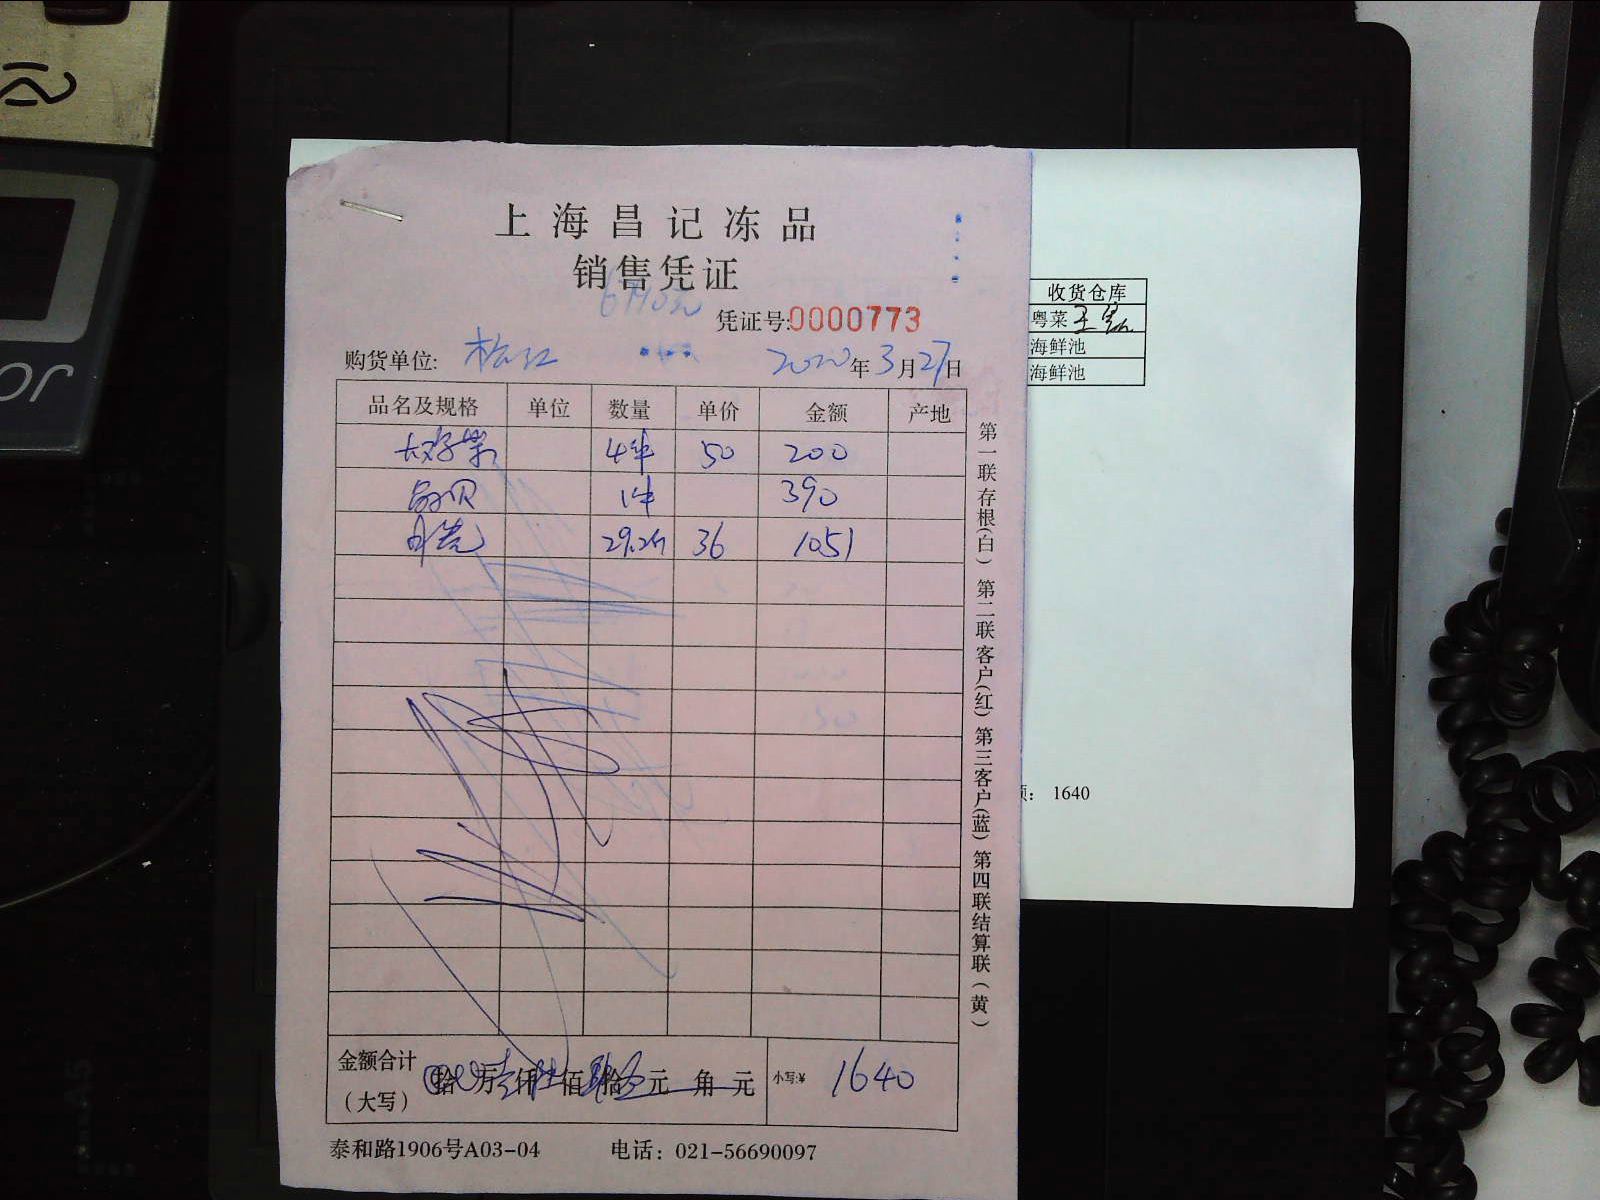 上海昌记冻品
销售凭证
凭证号:0000773
购货单位: 松江 2020年3月27日
品名及规格 单位 数量 单价 金额 产地
4件 50 200
贝 1件 390
29.2斤 36 1051
金额合计（大写） 拾 万 仟 佰 拾 元 角 元 小写:¥ 1640
泰和路1906号A03-04 电话：021-56690097
第一联存根(白) 第二联客户(红) 第三客户(蓝) 第四联结算联(黄)
收货仓库
粤菜
海鲜池
海鲜池
： 1640